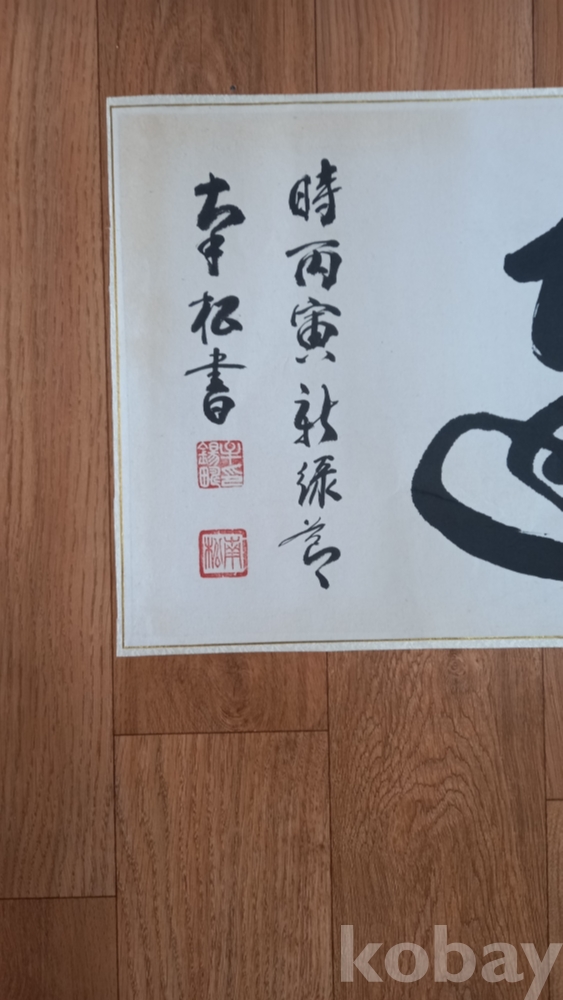 時丙寅新綠節
南松書
南松
kobay